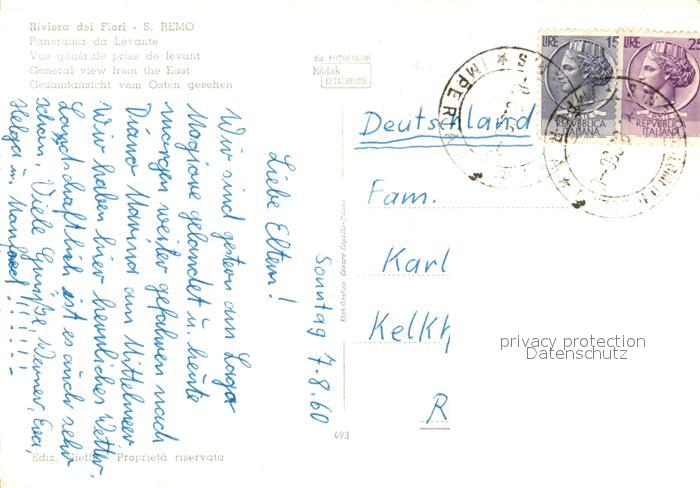 Riviera dei Fiori - S. REMO
Panorama da Levante
Vue générale prise de levant
General view from the East
Gesamtansicht vom Osten gesehen
da FOTOCOLOR
Kodak
EKTACHROME
LIRE 15
REPVBBLICA
ITALIANA
LIRE 25
REPVBBLICA
ITALIANA
IMPERIA
Sonntag 7.8.60
Liebe Eltern!
Wir sind gestern am Lago
Magiore gelandet u. heute
morgen weiter gefahren nach
Diano Marina am Mittelmeer.
Wir haben hier herrliches Wetter.
Landschaftlich ist es auch sehr
schön. Viele Grüße, Werner, Eva,
Helga u. Manfred!!!!!
Deutschland
Fam.
Karl
Kelkh
R
privacy protection
Datenschutz
493
Proprietà riservata